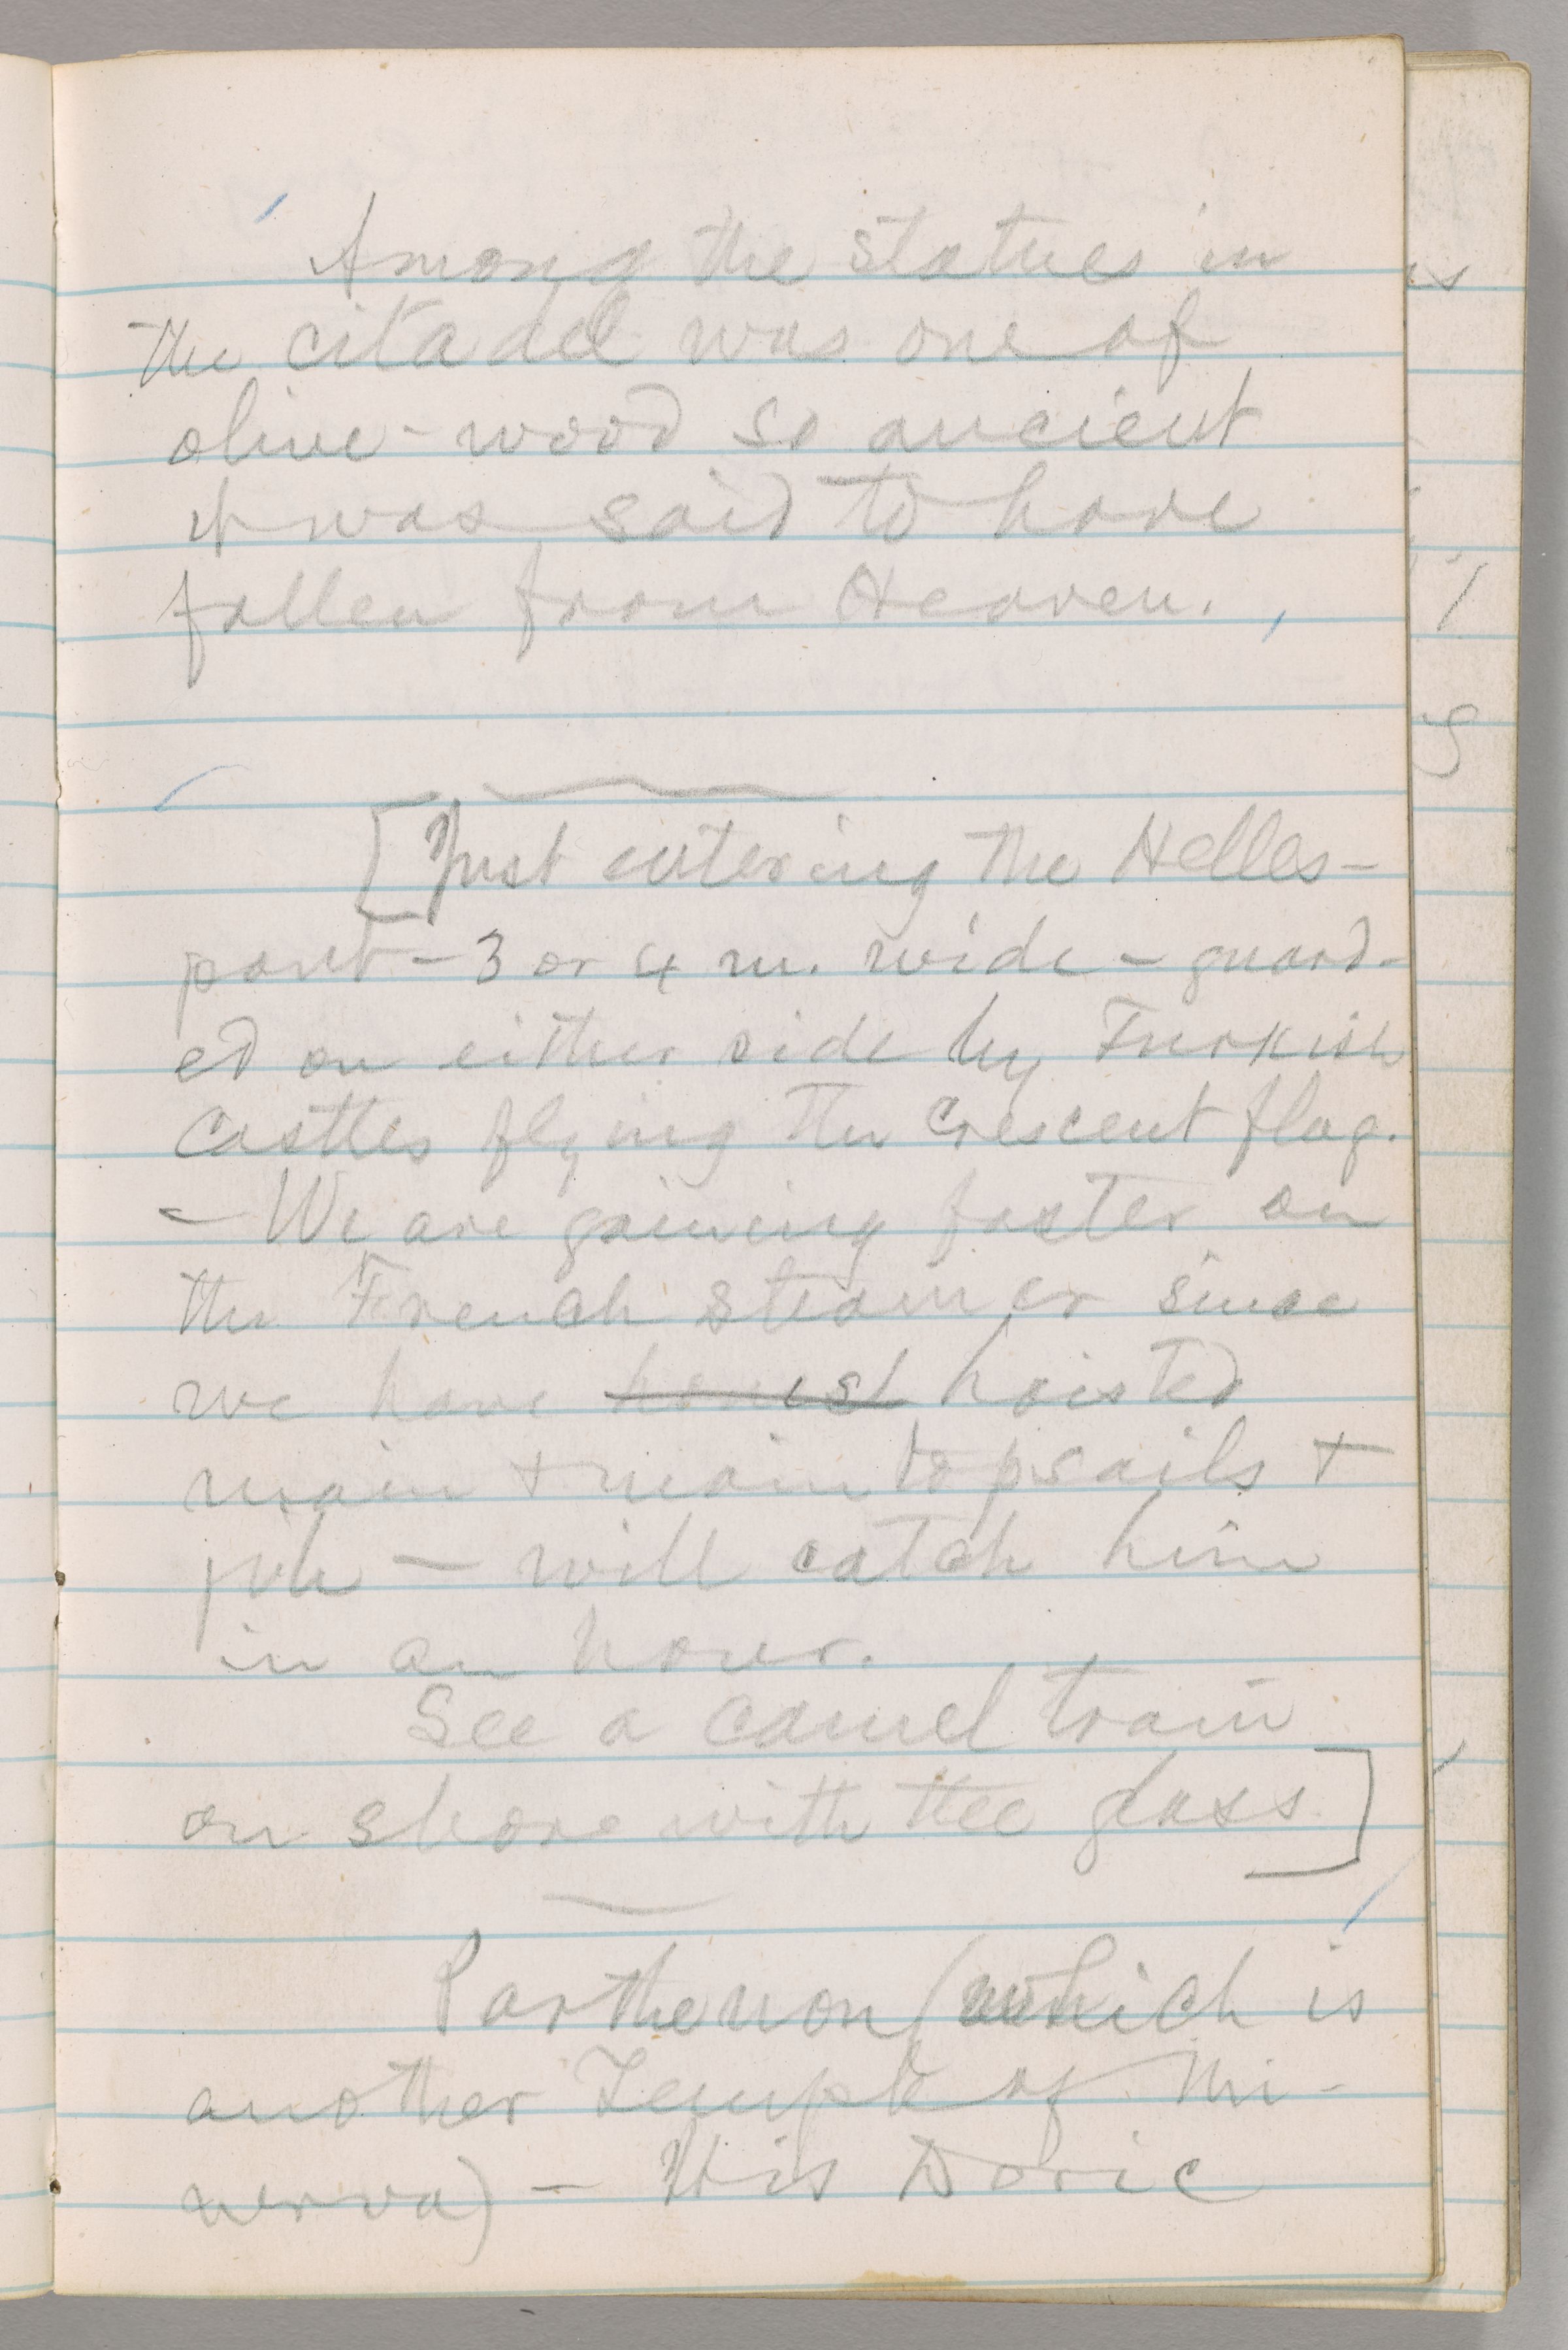 Among the statues in
the citadel was one of
olive-wood so ancient
it was said to have
fallen from Heaven.
[Just entering the Helles-
pont - 3 or 4 m. wide - guard-
ed on either side by Turkish
Castles flying the Crescent flag.
- We are gaining faster on
the French steamer since
we have hoisted
main + main topsails +
jib - will catch him
in an hour.
See a camel train
on shore with the glass]
Parthenon (which is
another Temple of Mi-
nerva) - It is Doric